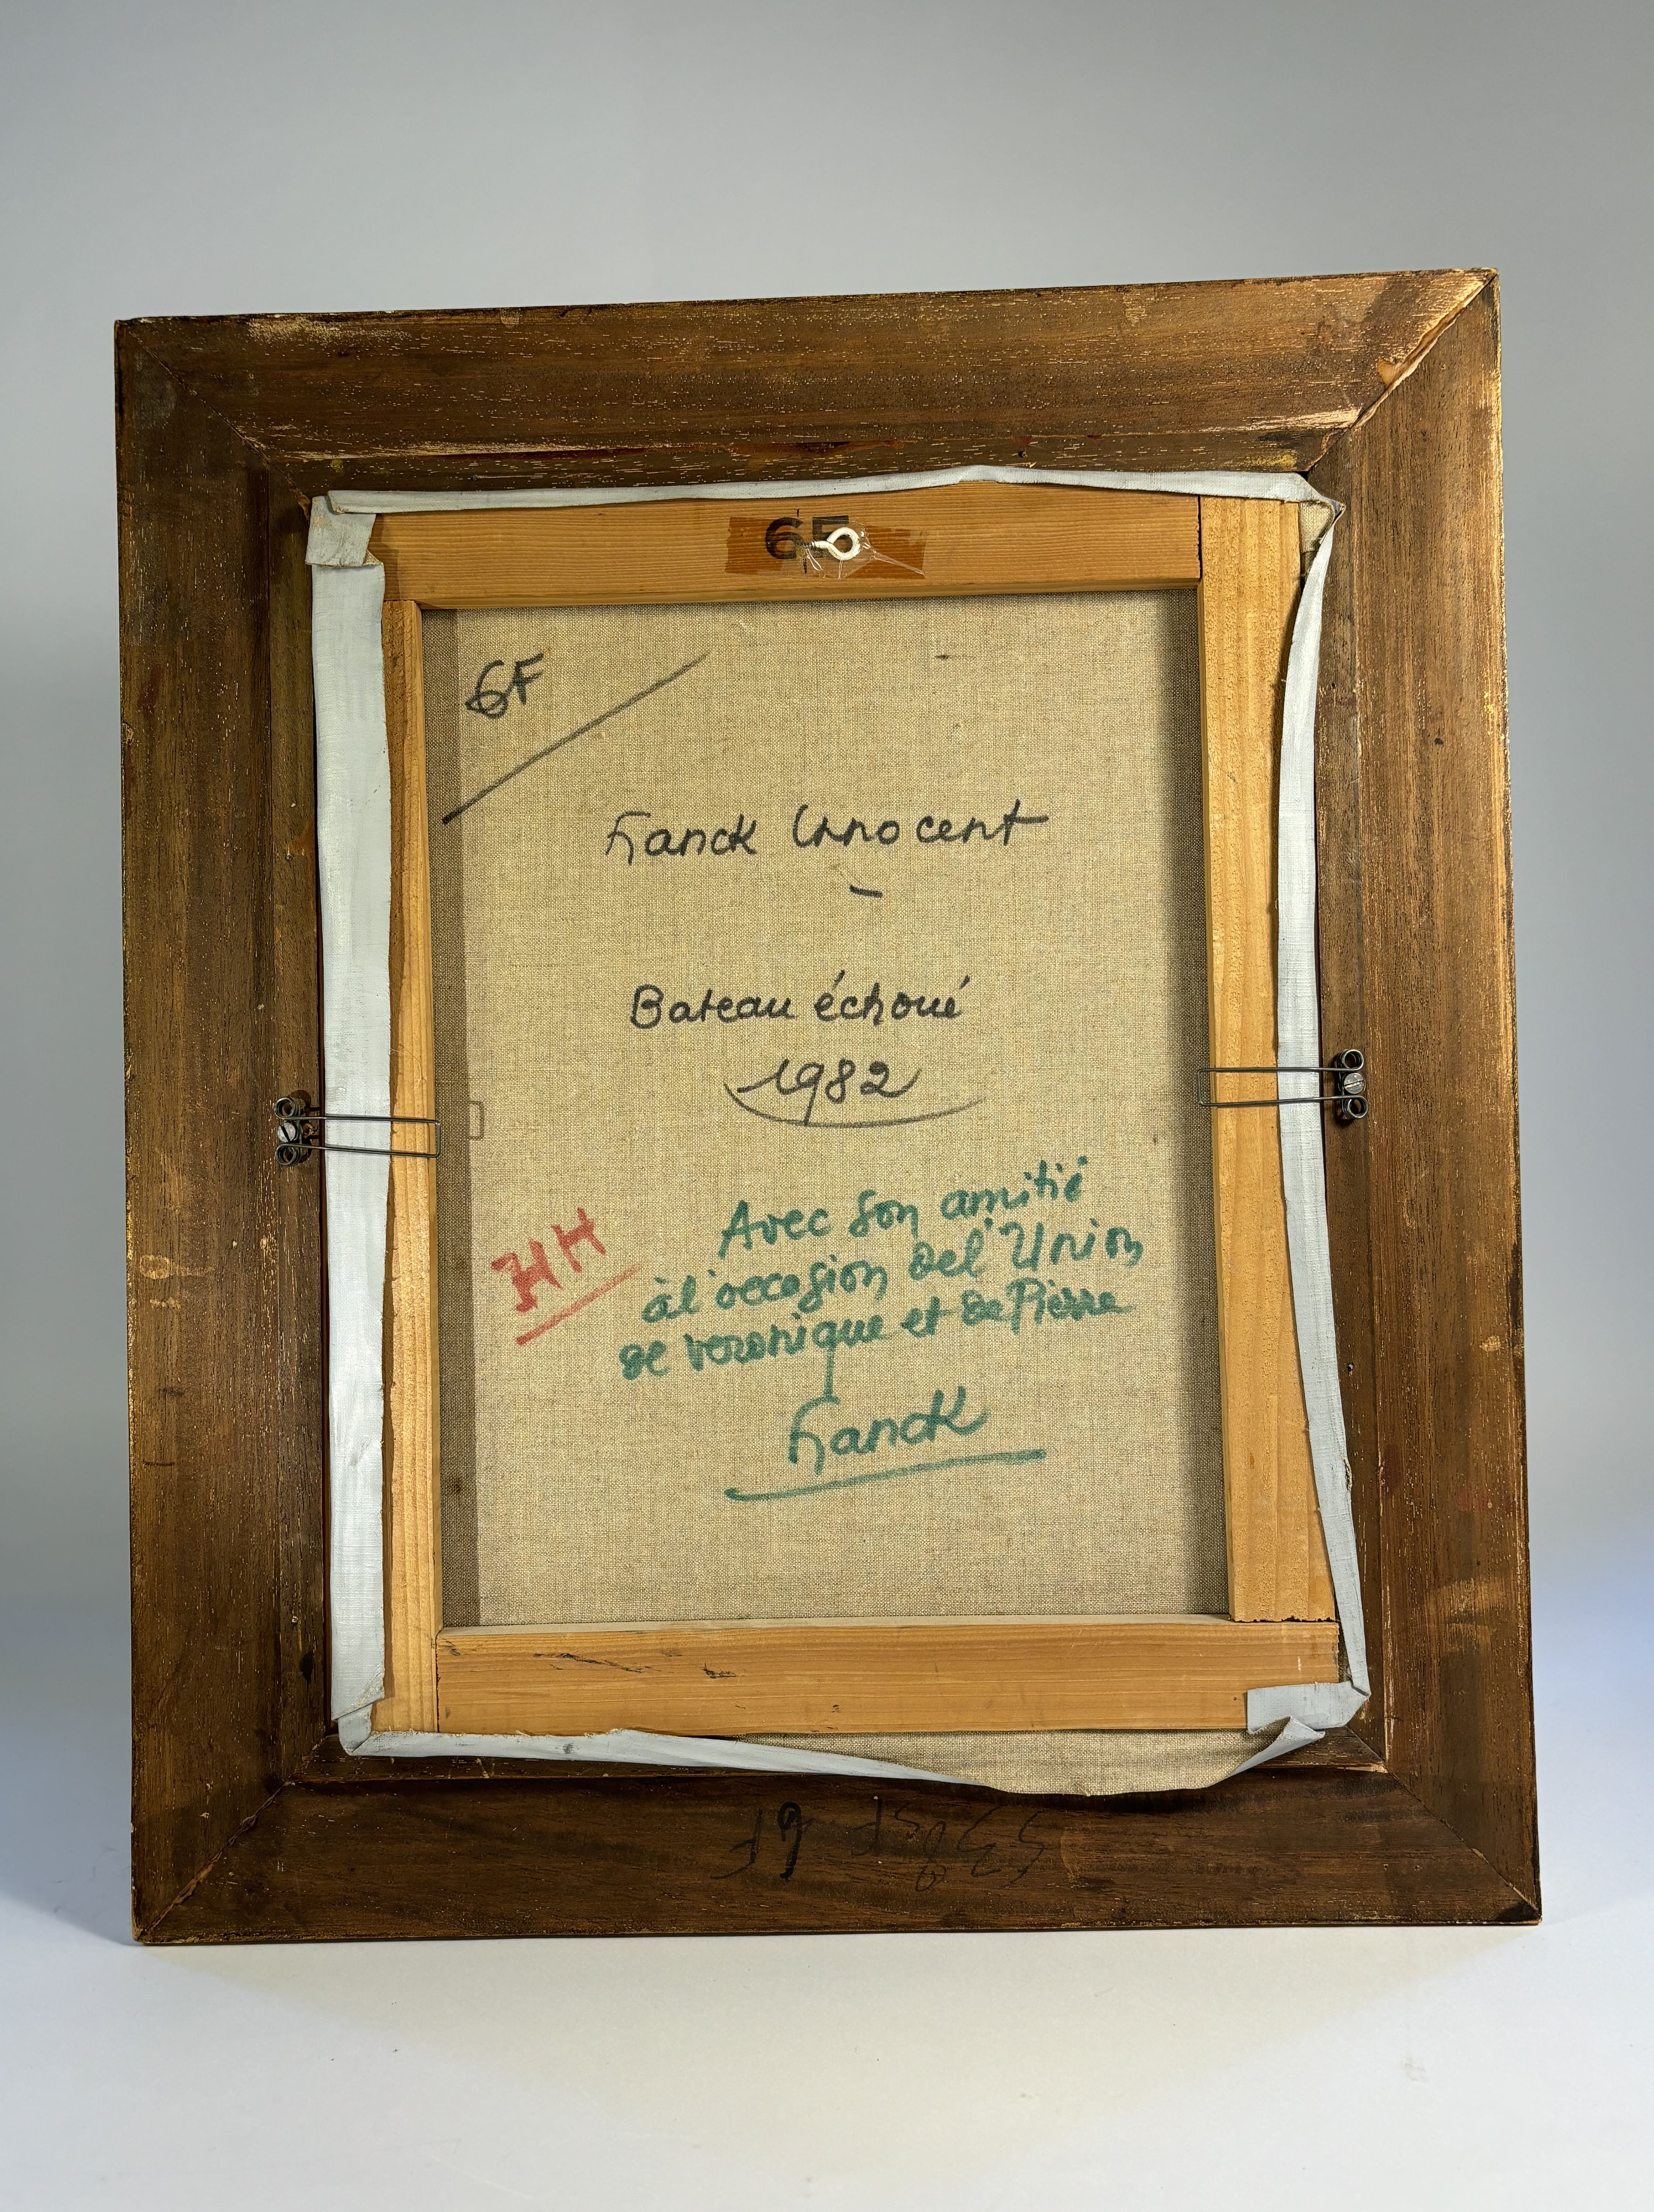 6F
6F
Franck Innocent
Bateau échoué
1982
HH
Avec son amitié
à l'occasion de l'Union
de veronique et de Pierre
Franck
6F